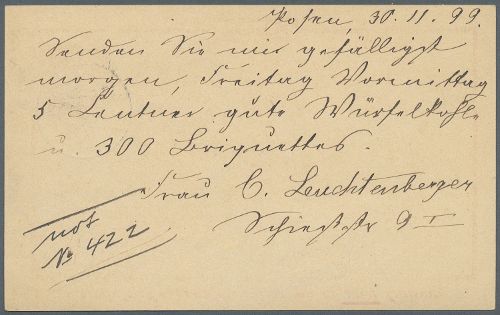 Posen, 30. 11. 99.
Senden Sie mir gefälligst
morgen, Freitag Vormittag
5 Centner gute Würfelkohle
u. 300 Briquettes.
Frau C. Leuchtenberger
Schießstr 9 I
not
No 422